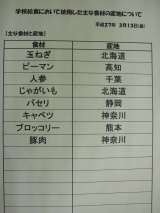 学校給食において使用した主な食材の産地について
平成27年 3月13日(金)
【主な食材と産地】
食材 産地
玉ねぎ 北海道
ピーマン 高知
人参 千葉
じゃがいも 北海道
パセリ 静岡
キャベツ 神奈川
ブロッコリー 熊本
豚肉 神奈川